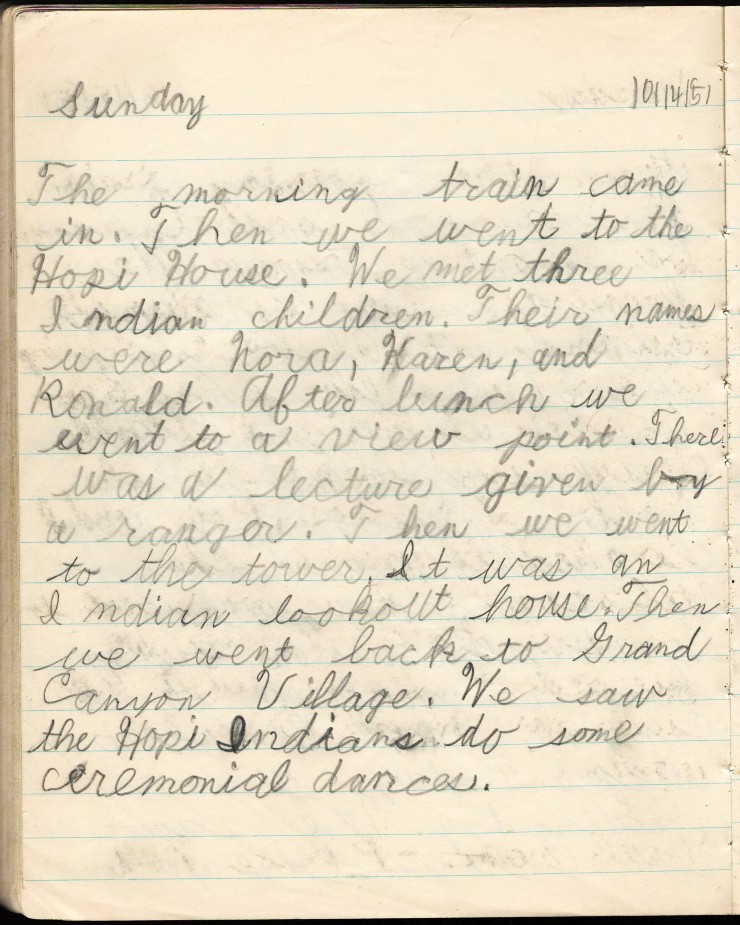 Sunday 10/14/51
The morning train came
in. Then we went to the
Hopi House. We met three
Indian children. Their names
were Nora, Karen, and
Ronald. After lunch we
went to a view point. There
was a lecture given by
a ranger. Then we went
to the tower. It was an
Indian lookout house. Then
we went back to Grand
Canyon Village. We saw
the Hopi Indians do some
ceremonial dances.